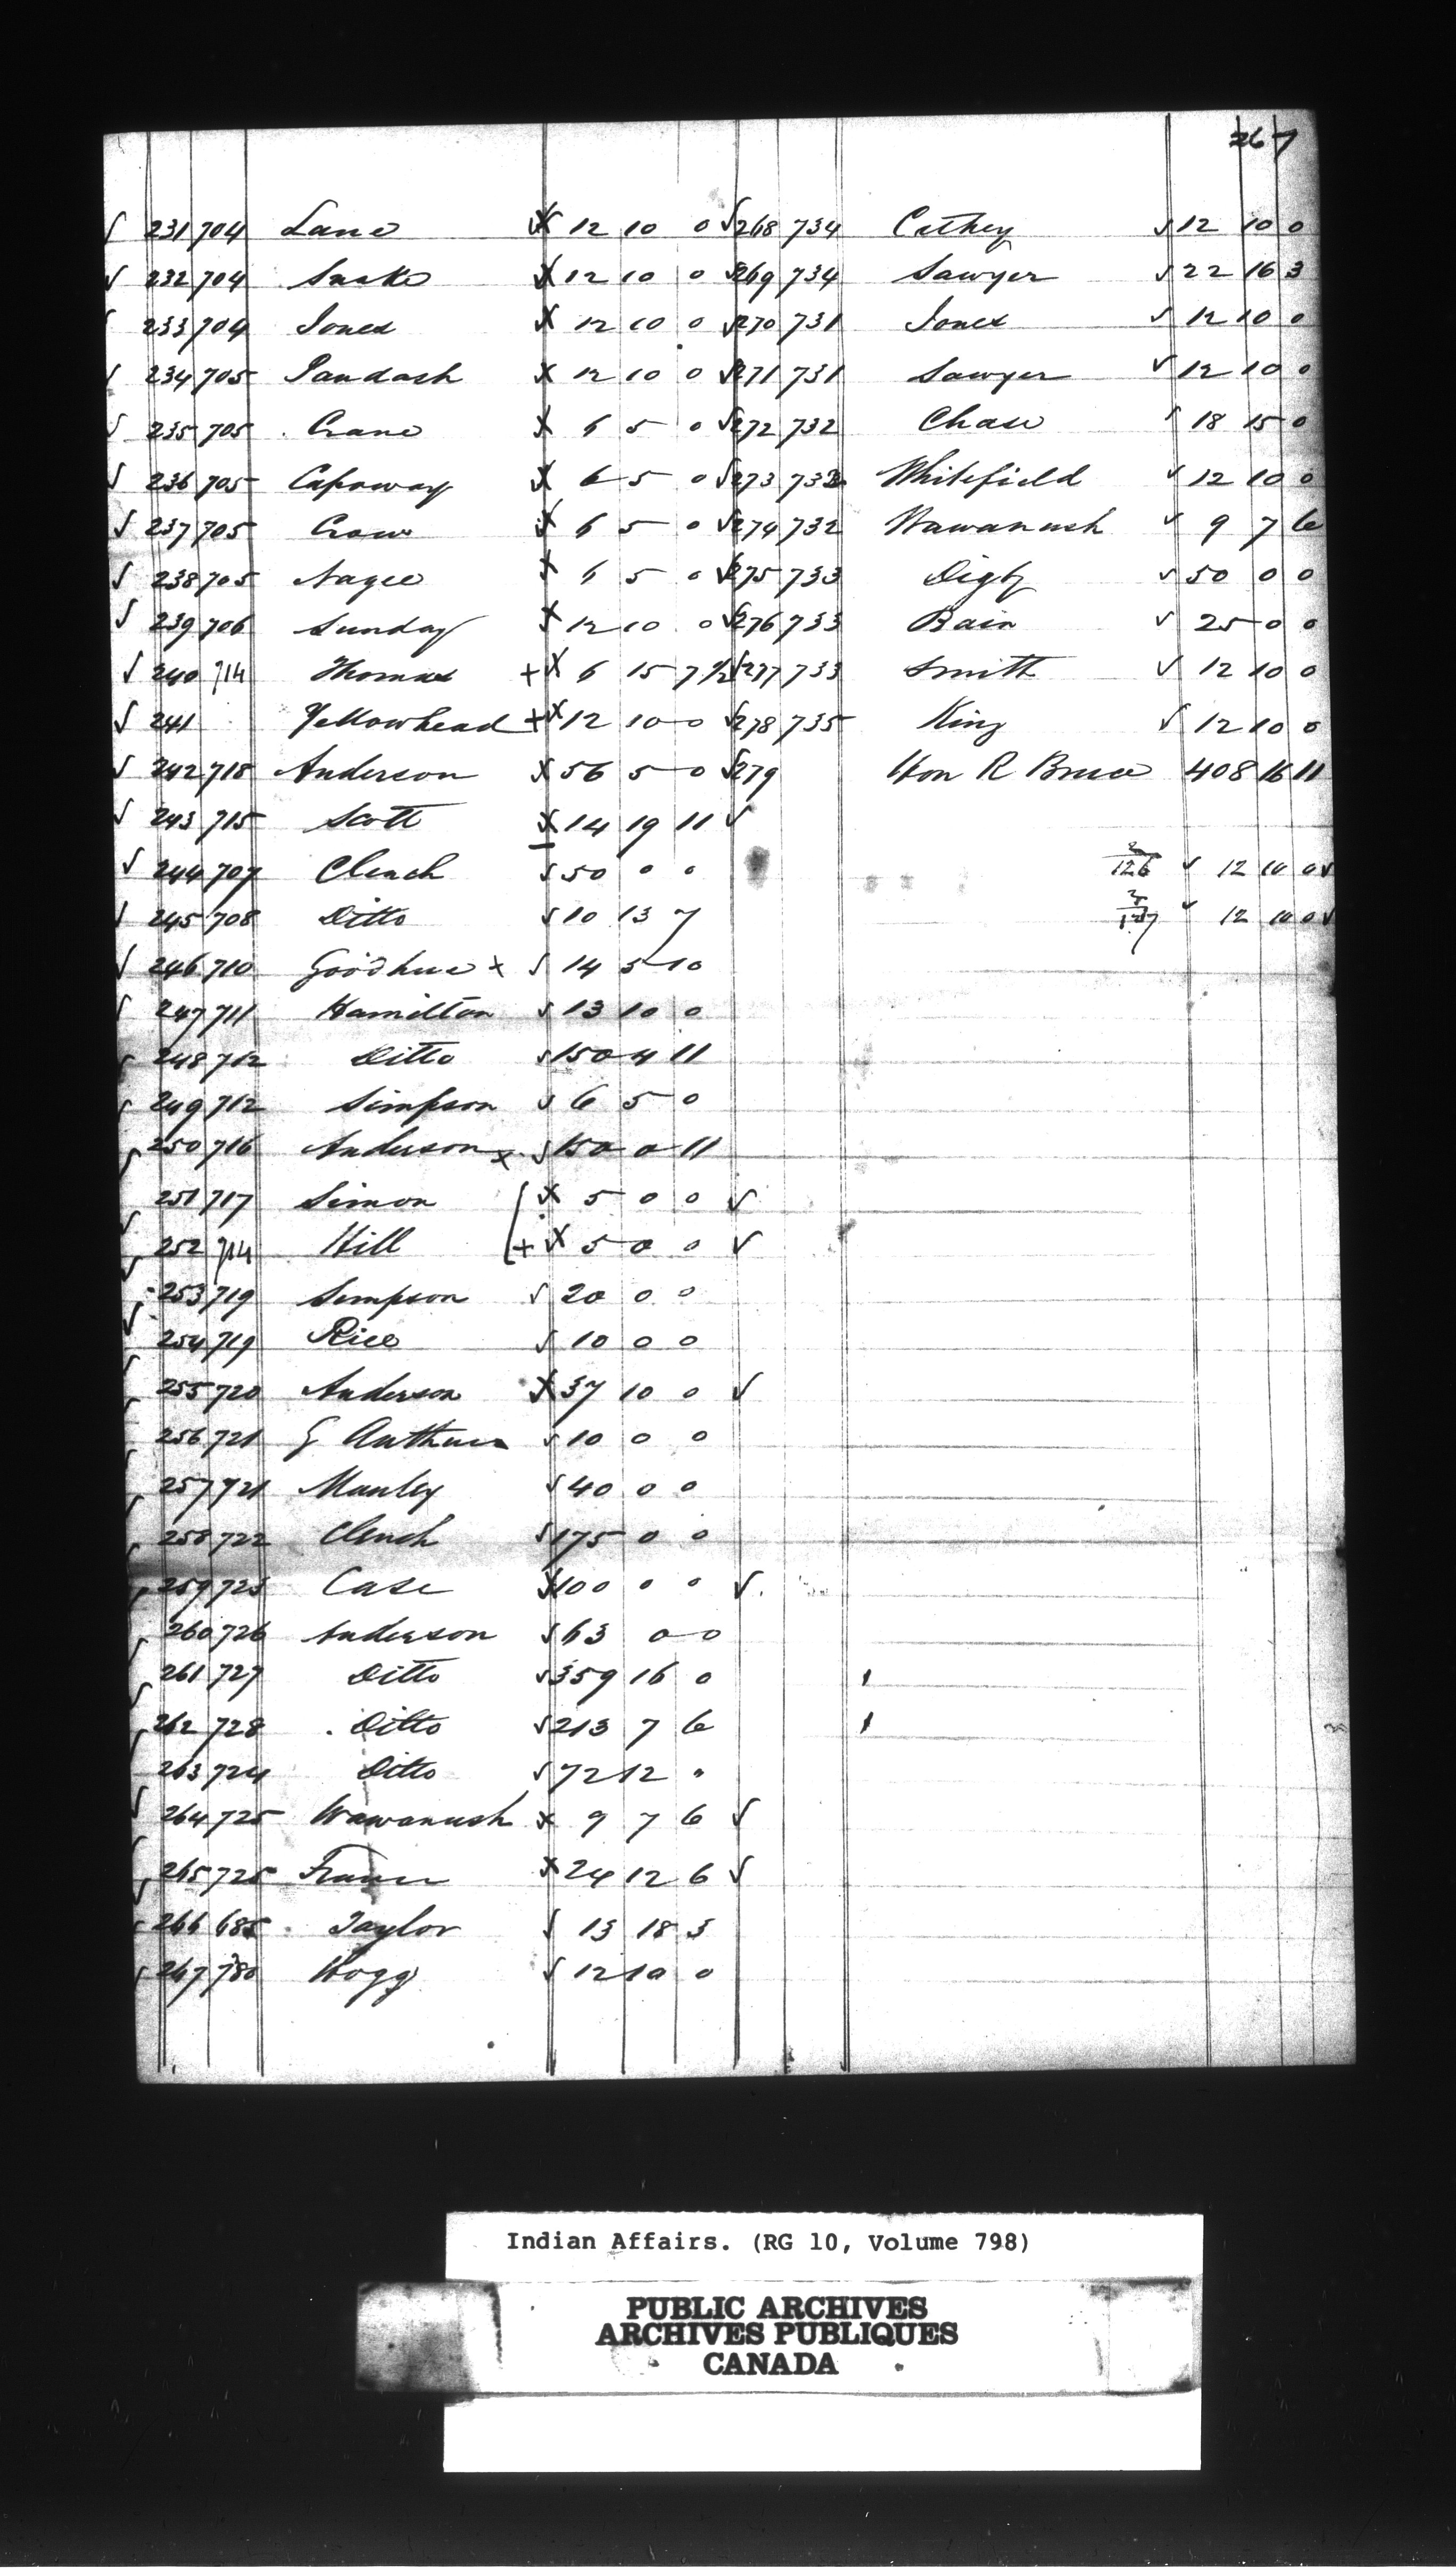 267
√ 231 704 Lane X 12 10 0 √ 268 734 Cathey √ 12 10 0
√ 232 704 Snake X 12 10 0 √ 269 734 Sawyer √ 22 16 3
√ 233 704 Jones X 12 10 0 √ 270 731 Jones √ 12 10 0
√ 234 705 Paudash X 12 10 0 √ 271 731 Sawyer √ 12 10 0
√ 235 705 Crane X 6 5 0 √ 272 732 Chase √ 18 15 0
√ 236 705 Capoway X 6 5 0 √ 273 732 Whitefield √ 12 10 0
√ 237 705 Crow X 6 5 0 √ 274 732 Wawanush √ 9 7 6
√ 238 705 Nagee X 6 5 0 √ 275 733 Digby √ 50 0 0
√ 239 706 Sunday X 12 10 0 √ 276 733 Bain √ 25 0 0
√ 240 714 Thomas + X 6 15 7 1/2 √ 277 733 Smith √ 12 10 0
√ 241 Yellowhead + X 12 10 0 √ 278 735 King √ 12 10 0
√ 242 718 Anderson X 56 5 0 √ 279 Hon R Bruce 408 16 11
√ 243 715 Scott X 14 19 11 √
√ 244 707 Clench √ 50 0 0 2/126 √ 12 10 0 √
√ 245 708 Ditto √ 10 13 7 2/127 √ 12 10 0 √
√ 246 710 Goodhue x √ 14 5 10
√ 247 711 Hamilton √ 13 10 0
√ 248 712 Ditto √ 150 4 11
√ 249 712 Simpson √ 6 5 0
√ 250 716 Anderson x √ 150 0 11
√ 251 717 Simon X 5 0 0 √
√ 252 714 Hill + X 5 0 0 √
√ 253 719 Simpson √ 20 0 0
√ 254 719 Rice √ 10 0 0
√ 255 720 Anderson X 37 10 0 √
√ 256 721 G √ 10 0 0
√ 257 721 Manley √ 40 0 0
√ 258 722 Clench √ 175 0 0
√ 259 723 Case X 100 0 0 √
√ 260 726 Anderson √ 63 0 0
√ 261 727 Ditto √ 359 16 0
√ 262 728 Ditto √ 213 7 6
√ 263 724 Ditto √ 72 12 "
√ 264 725 Wawanush X 9 7 6 √
√ 265 725 X 24 12 6 √
√ 266 685 Taylor √ 13 18 3
√ 267 730 Hogg √ 12 10 0
Indian Affairs. (RG 10, Volume 798)
PUBLIC ARCHIVES
ARCHIVES PUBLIQUES
CANADA